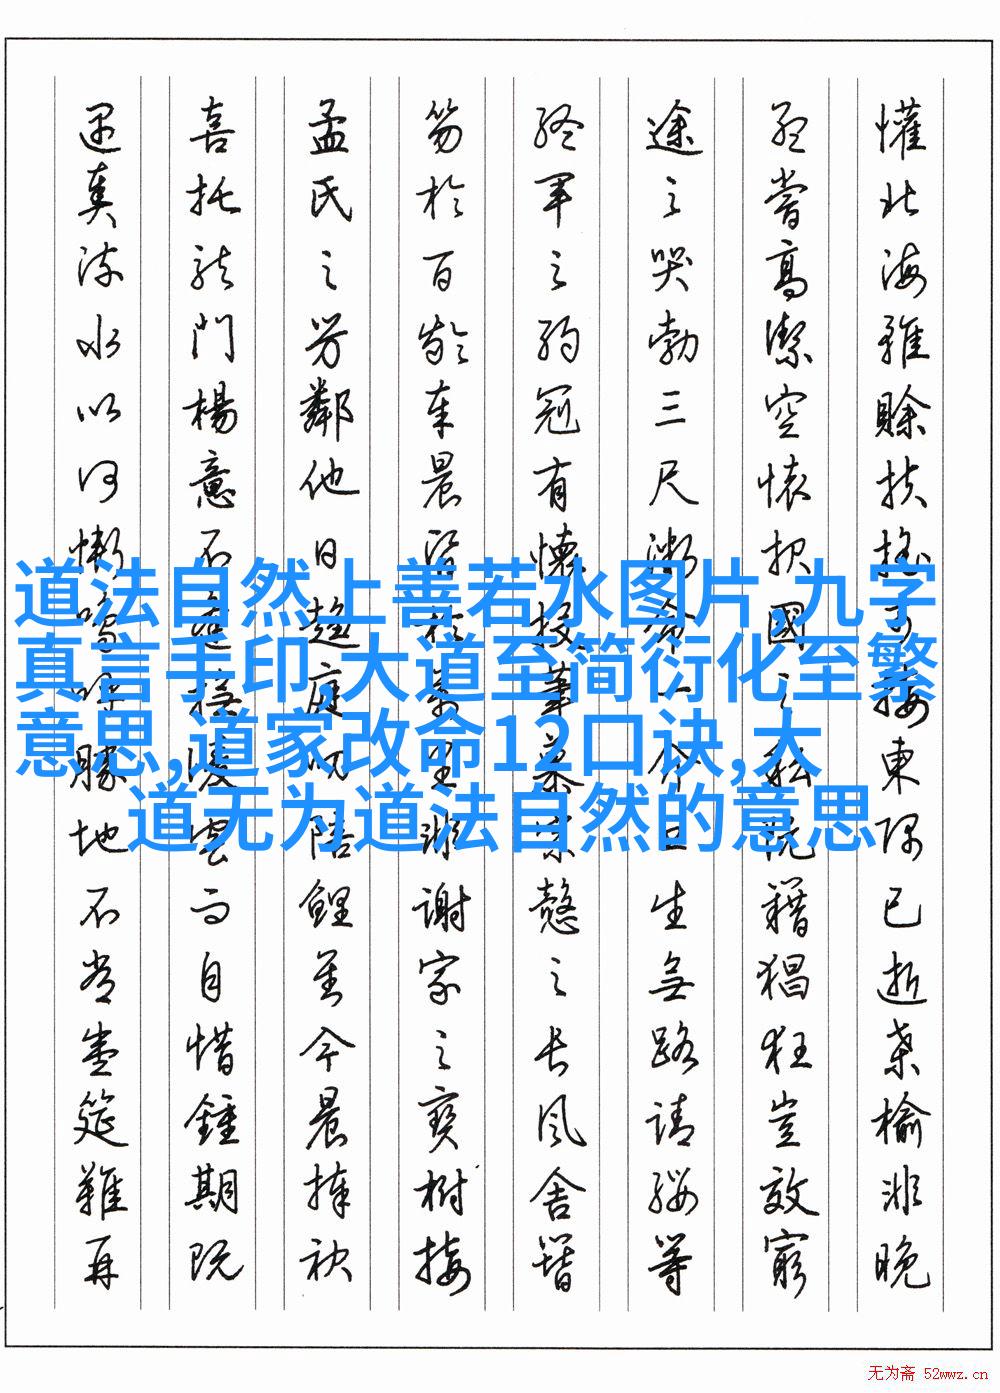 懽北海雖賒扶搖可接東隅已逝桑榆非晚
孟嘗高潔空懷报國之私阮籍猖狂豈效窮
途之哭勃三尺微命一介書生無路請纓等
終軍之弱冠有懷投筆慕宗愨之長風舍簪
笏於百齡奉晨昏於萬里非謝家之寶樹接
孟氏之芳鄰他日趨庭叨陪鯉對今晨捧袂
喜托龍門楊意不逢撫凌雲而自惜鍾期既
遇奏流水以何慚嗚呼勝地不常盛筵難再
道法自然上善若水图片,九字
真言手印,大道至简衍化至繁
意思,道家改命12口诀,大
道无为道法自然的意思
无为斋 52wwz.cn